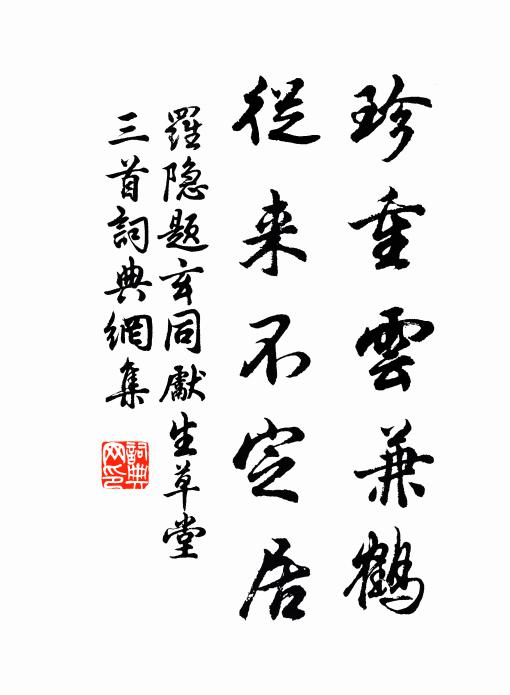 珍重雲兼鶴
從来不定居
羅隐题玄同獻生草堂
三首詞典網集
詞典网印